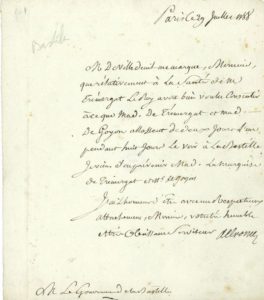 Paris le 29 Juillet 1788
Bastille
M De Villedeuil me marque, Monsieur,
que relativement à la Santé de M
Trémergat Le Roy avoit bien voulu Consentir
à ce que Mad. de Tremergat et mad.
De Goyon allassent de deux Jours l'un
pendant huit Jours Le voir à La Bastille
Je viens d'en prévenir Mad. La marquise
de Trémergat et M. de Goyon
J'ai l'honneur d'être avec un respectueux
attachement, Monsieur, votre très humble
et très Obéissant Serviteur
M. Le Gouverneur de la Bastille